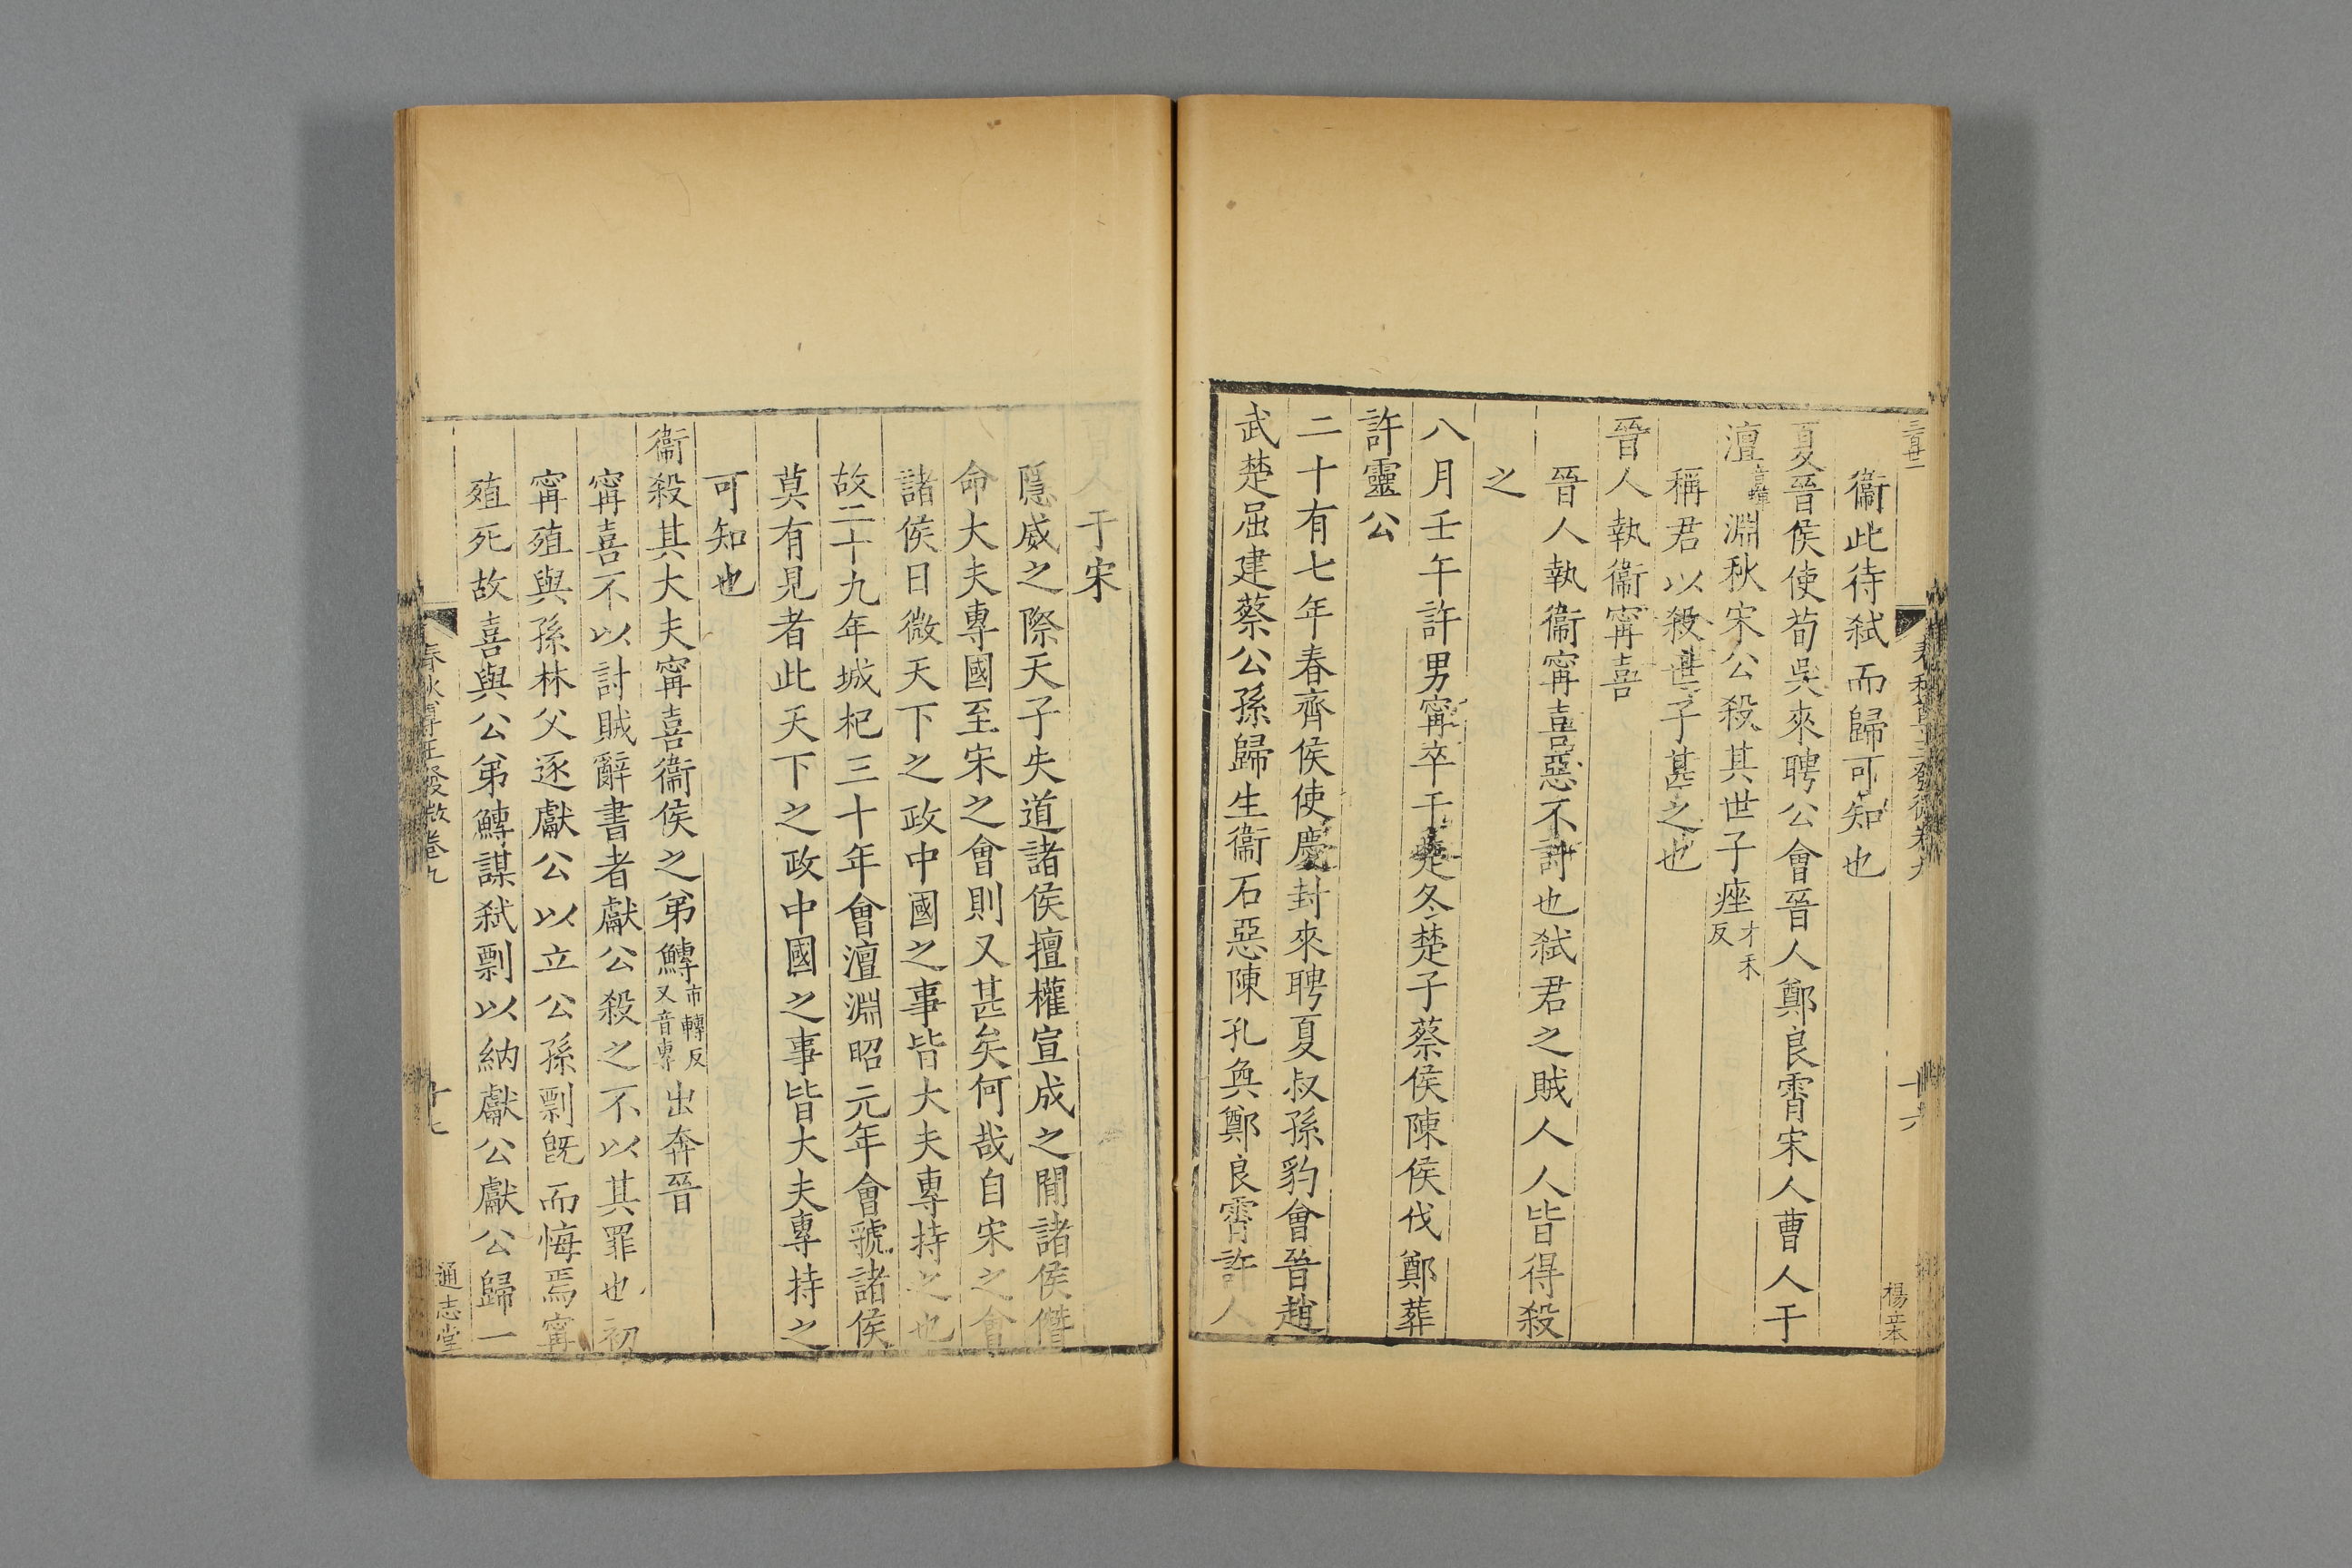 衞此待弑而歸可知也
夏晉侯使荀吳來聘公會晉人鄭良霄宋人曹人于
澶音蟬淵秋宋公殺其世子痤才禾反
稱君以殺世子甚之也
晉人執衞甯喜
晉人執衞甯喜惡不討也弑君之賊人人皆得殺
之
八月壬午許男甯卒于楚冬楚子蔡侯陳侯伐鄭葬
許靈公
二十有七年春齊侯使慶封來聘夏叔孫豹會晉趙
武楚屈建蔡公孫歸生衞石惡陳孔奐鄭良霄許人
春秋尊王發微卷九
十六
楊立本
于宋
隱威之際天子失道諸侯擅權宣成之間諸侯僭
命大夫專國至宋之會則又甚矣何哉自宋之會
諸侯日微天下之政中國之事皆大夫專持之也
故二十九年城杞三十年會澶淵昭元年會虢諸侯
莫有見者此天下之政中國之事皆大夫專持之
可知也
衞殺其大夫甯喜衞侯之弟鱄市轉反又音專出奔晉
甯喜不以討賊辭書者獻公殺之不以其罪也初
甯殖與孫林父逐獻公以立公孫剽旣而悔焉甯
殖死故喜與公弟鱄謀弑剽以納獻公獻公歸一
春秋尊王發微卷九
十七
通志堂